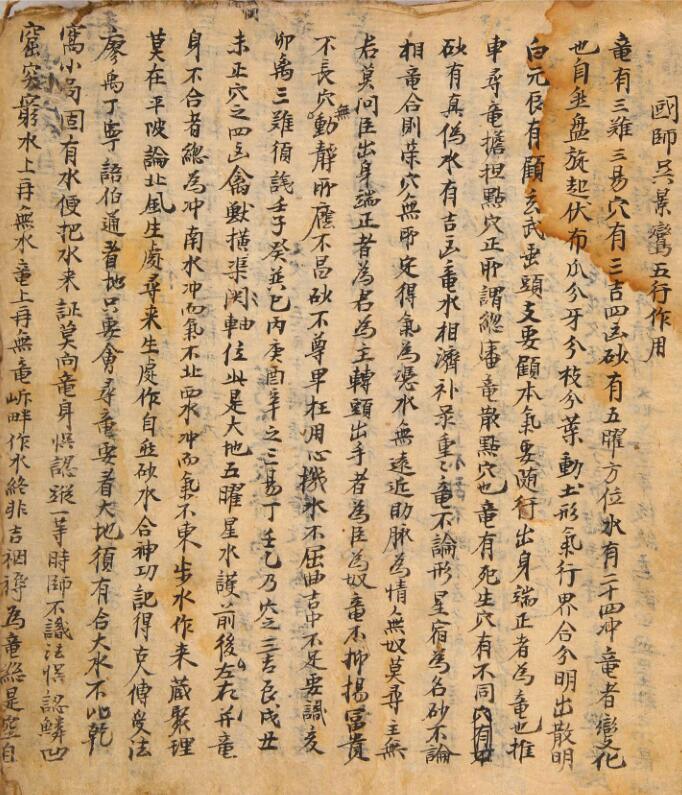 國師吳景鸞五行作用
竜有三難三易穴有三吉四凶砂有五曜方位水有二十四冲竜者變化
也自然盤旋起伏布爪分牙分枝分葉動土形氣行界合分明出散明
白元辰有顧玄武垂頭支要顧本氣要随行出身端正者為竜也推
車尋竜擔担點穴正所謂緫潘竜散點穴也竜有死生穴有不同穴有如
砂有真偽水有吉凶竜水相濟补录重之竜不論形星宿為名砂不論
相竜合則荣穴無即定得氣為憑水無遠近助脉為情無奴莫尋主無
君莫问臣出身端正者為君為王轉頭出手者為臣為奴竜不抑揚冨貴
不長穴無動靜所應不昌砂不尊卑枉用心機水不屈曲吉中不足要識亥
卯禹三難須識壬子癸並巳丙庚酉辛之三易丁生乙乃六之三吉辰戌丑
未正穴之四凶禽獣横渠関軸位此是大地五曜星水護前後左右并竜
身不合者緫為冲南水冲而氣不北西水冲而氣不東步水作来蔵聚理
莫在平陂論北風生處尋来生處作自然砂水合神功記得古人傳受法
廖禹丁寧語伯通者地只要會尋竜要者大地須有合大水不此乾
窩小局固有水便把水来証莫向竜身悞認蹤一等時師不識法悞認鱗凹
窟突窮水上再無水竜上再無竜㟁畔作水終非吉裀褥為竜緫是空自